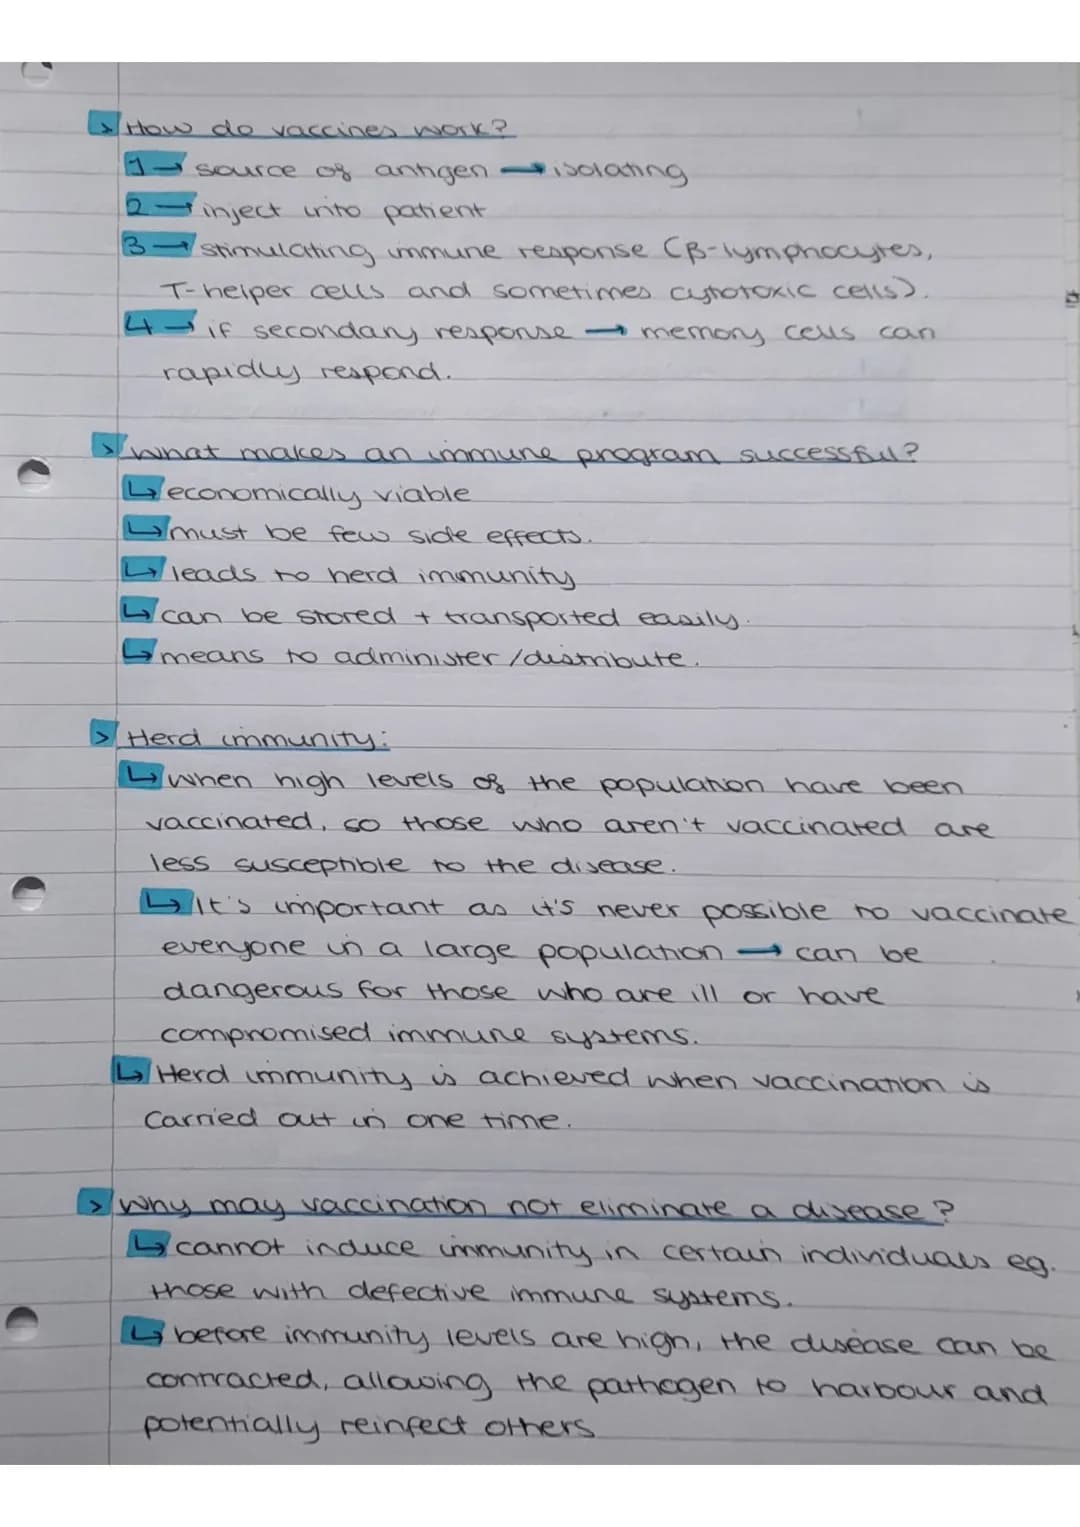 > How do vaccines work?
1→ source of antigen → isolating
2→ inject into patient
3→ stimulating immune response (B-lymphocytes,
T-helper cells and sometimes cytotoxic cells).
4→ if secondary response → memory cells can
rapidly respond.
> What makes an immune program successful?
↳ economically viable
↳ must be few side effects.
↳ leads to herd immunity
↳ can be stored + transported easily.
↳ means to administer/distribute.
> Herd immunity:
↳ when high levels of the population have been
vaccinated, so those who aren't vaccinated are
less susceptible to the disease.
↳ It's important as it's never possible to vaccinate
everyone in a large population → can be
dangerous for those who are ill or have
compromised immune systems.
↳ Herd immunity is achieved when vaccination is
carried out in one time.
> Why may vaccination not eliminate a disease?
↳ cannot induce immunity in certain individuals eg.
those with defective immune systems.
↳ before immunity levels are high, the disease can be
contracted, allowing the pathogen to harbour and
potentially reinfect others